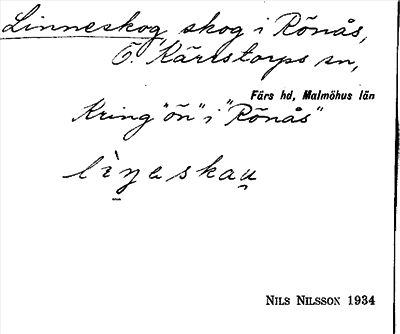 Linneskog, skog i Rönås,
Ö. Kärrstorps sn,
Färs hd, Malmöhus län
Kring "ön" i "Rönås"
NILS NILSSON 1934